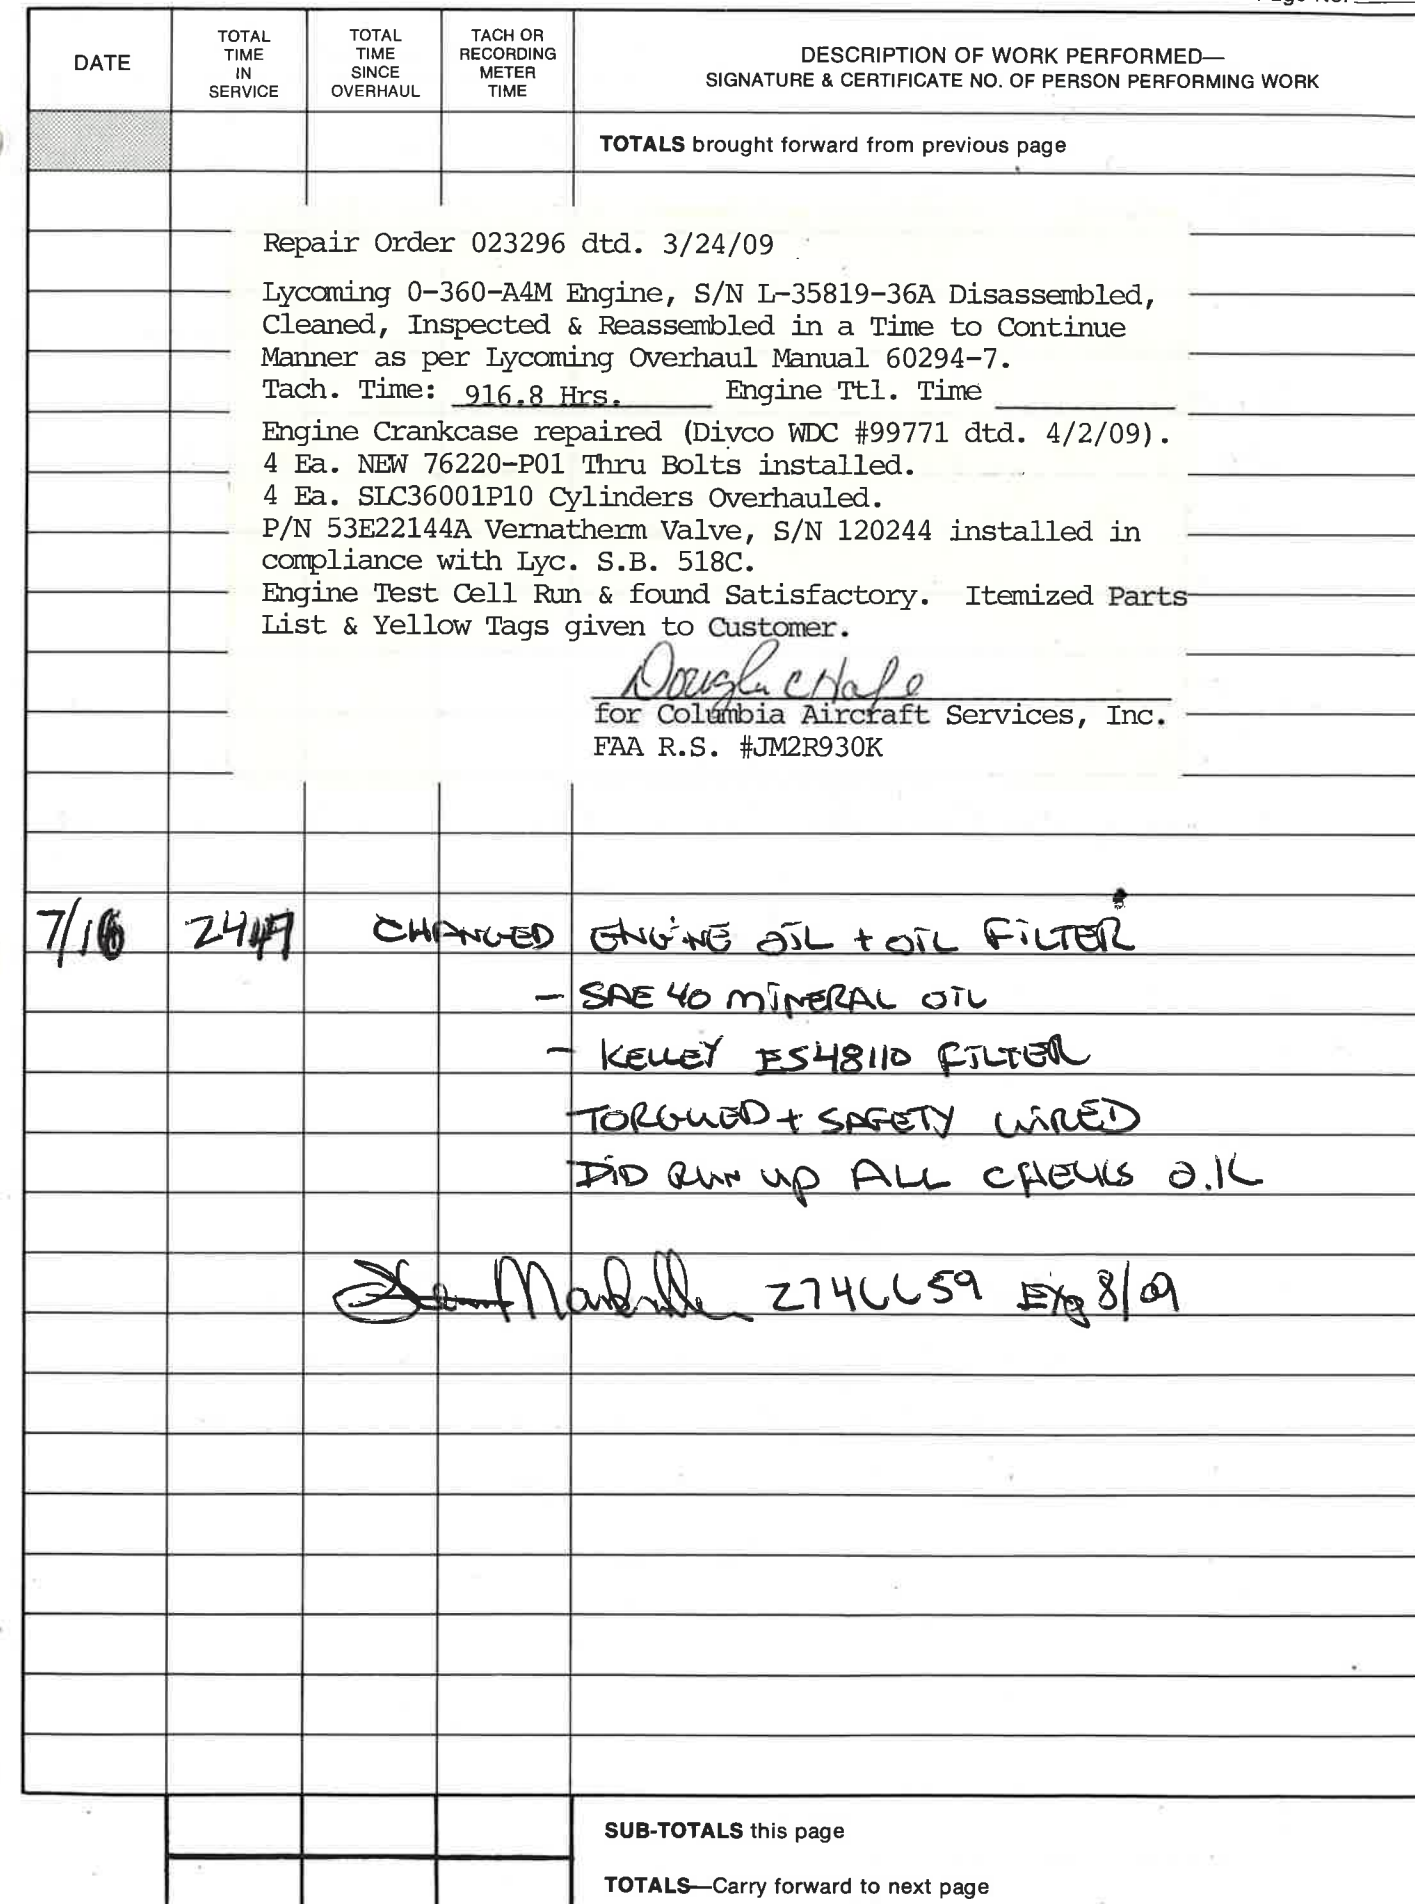 DATE
TOTAL TIME IN SERVICE
TOTAL TIME SINCE OVERHAUL
TACH OR RECORDING METER TIME
DESCRIPTION OF WORK PERFORMED—
SIGNATURE & CERTIFICATE NO. OF PERSON PERFORMING WORK
TOTALS brought forward from previous page
Repair Order 023296 dtd. 3/24/09
Lycoming 0-360-A4M Engine, S/N L-35819-36A Disassembled,
Cleaned, Inspected & Reassembled in a Time to Continue
Manner as per Lycoming Overhaul Manual 60294-7.
Tach. Time: 916.8 Hrs. Engine Ttl. Time
Engine Crankcase repaired (Divco WDC #99771 dtd. 4/2/09).
4 Ea. NEW 76220-P01 Thru Bolts installed.
4 Ea. SLC36001P10 Cylinders Overhauled.
P/N 53E22144A Vernatherm Valve, S/N 120244 installed in
compliance with Lyc. S.B. 518C.
Engine Test Cell Run & found Satisfactory. Itemized Parts
List & Yellow Tags given to Customer.
for Columbia Aircraft Services, Inc.
FAA R.S. #JM2R930K
CHANGED ENGINE OIL + OIL FILTER
- SAE 40 MINERAL OIL
- KELLEY ES48110 FILTER
TORGUED + SAFETY WIRED
DID RUN UP ALL CHECKS O.K
Exp 8/09
SUB-TOTALS this page
TOTALS—Carry forward to next page